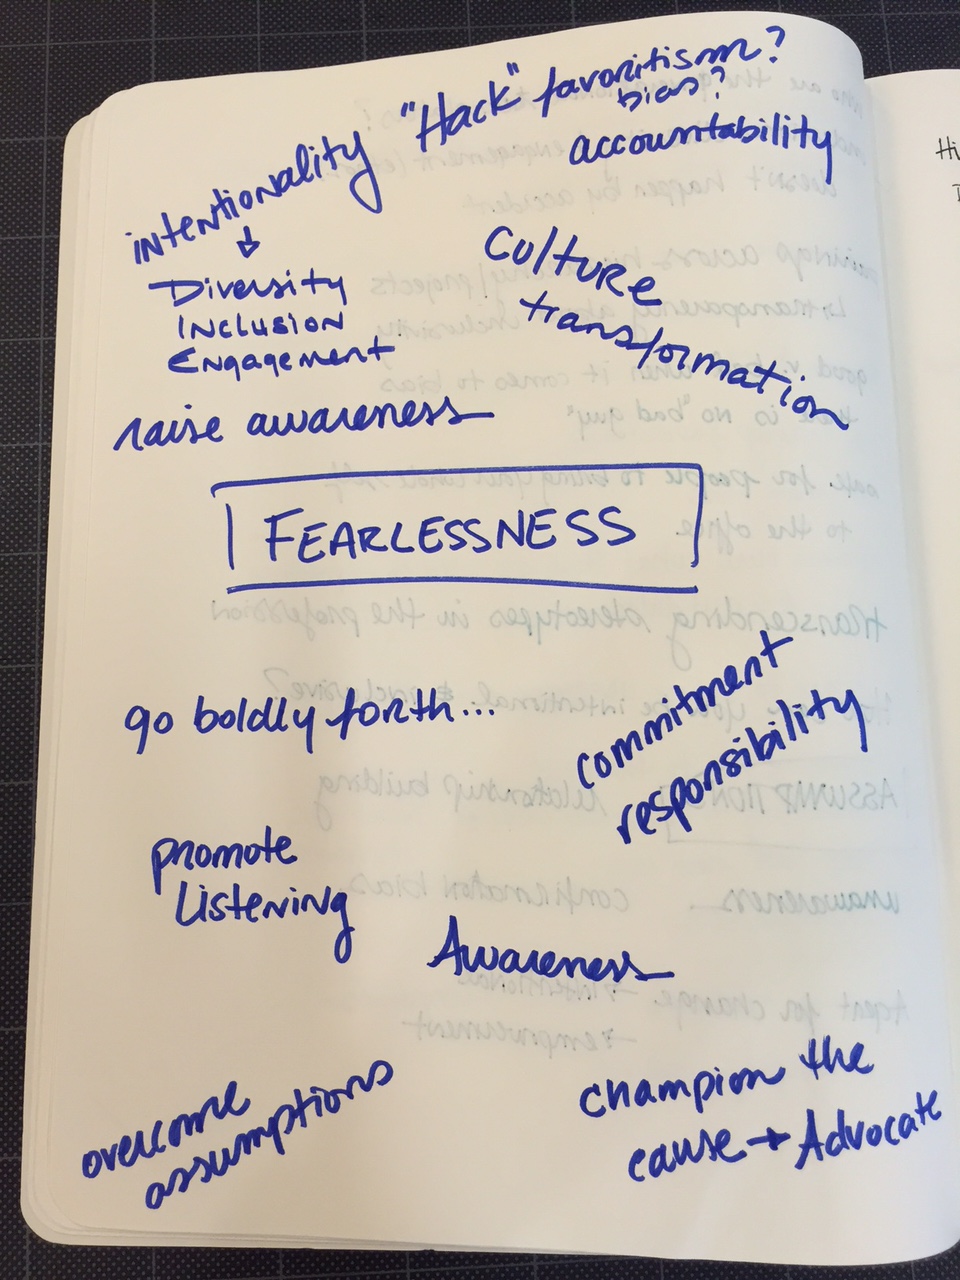 "Hack" favoritism?
bias?
accountability
intentionality
↓
Diversity
Inclusion
Engagement
culture
transformation
raise awareness
FEARLESSNESS
go boldly forth...
commitment
responsibility
promote
Listening
Awareness
overcome
assumptions
champion the
cause → Advocate
Hi